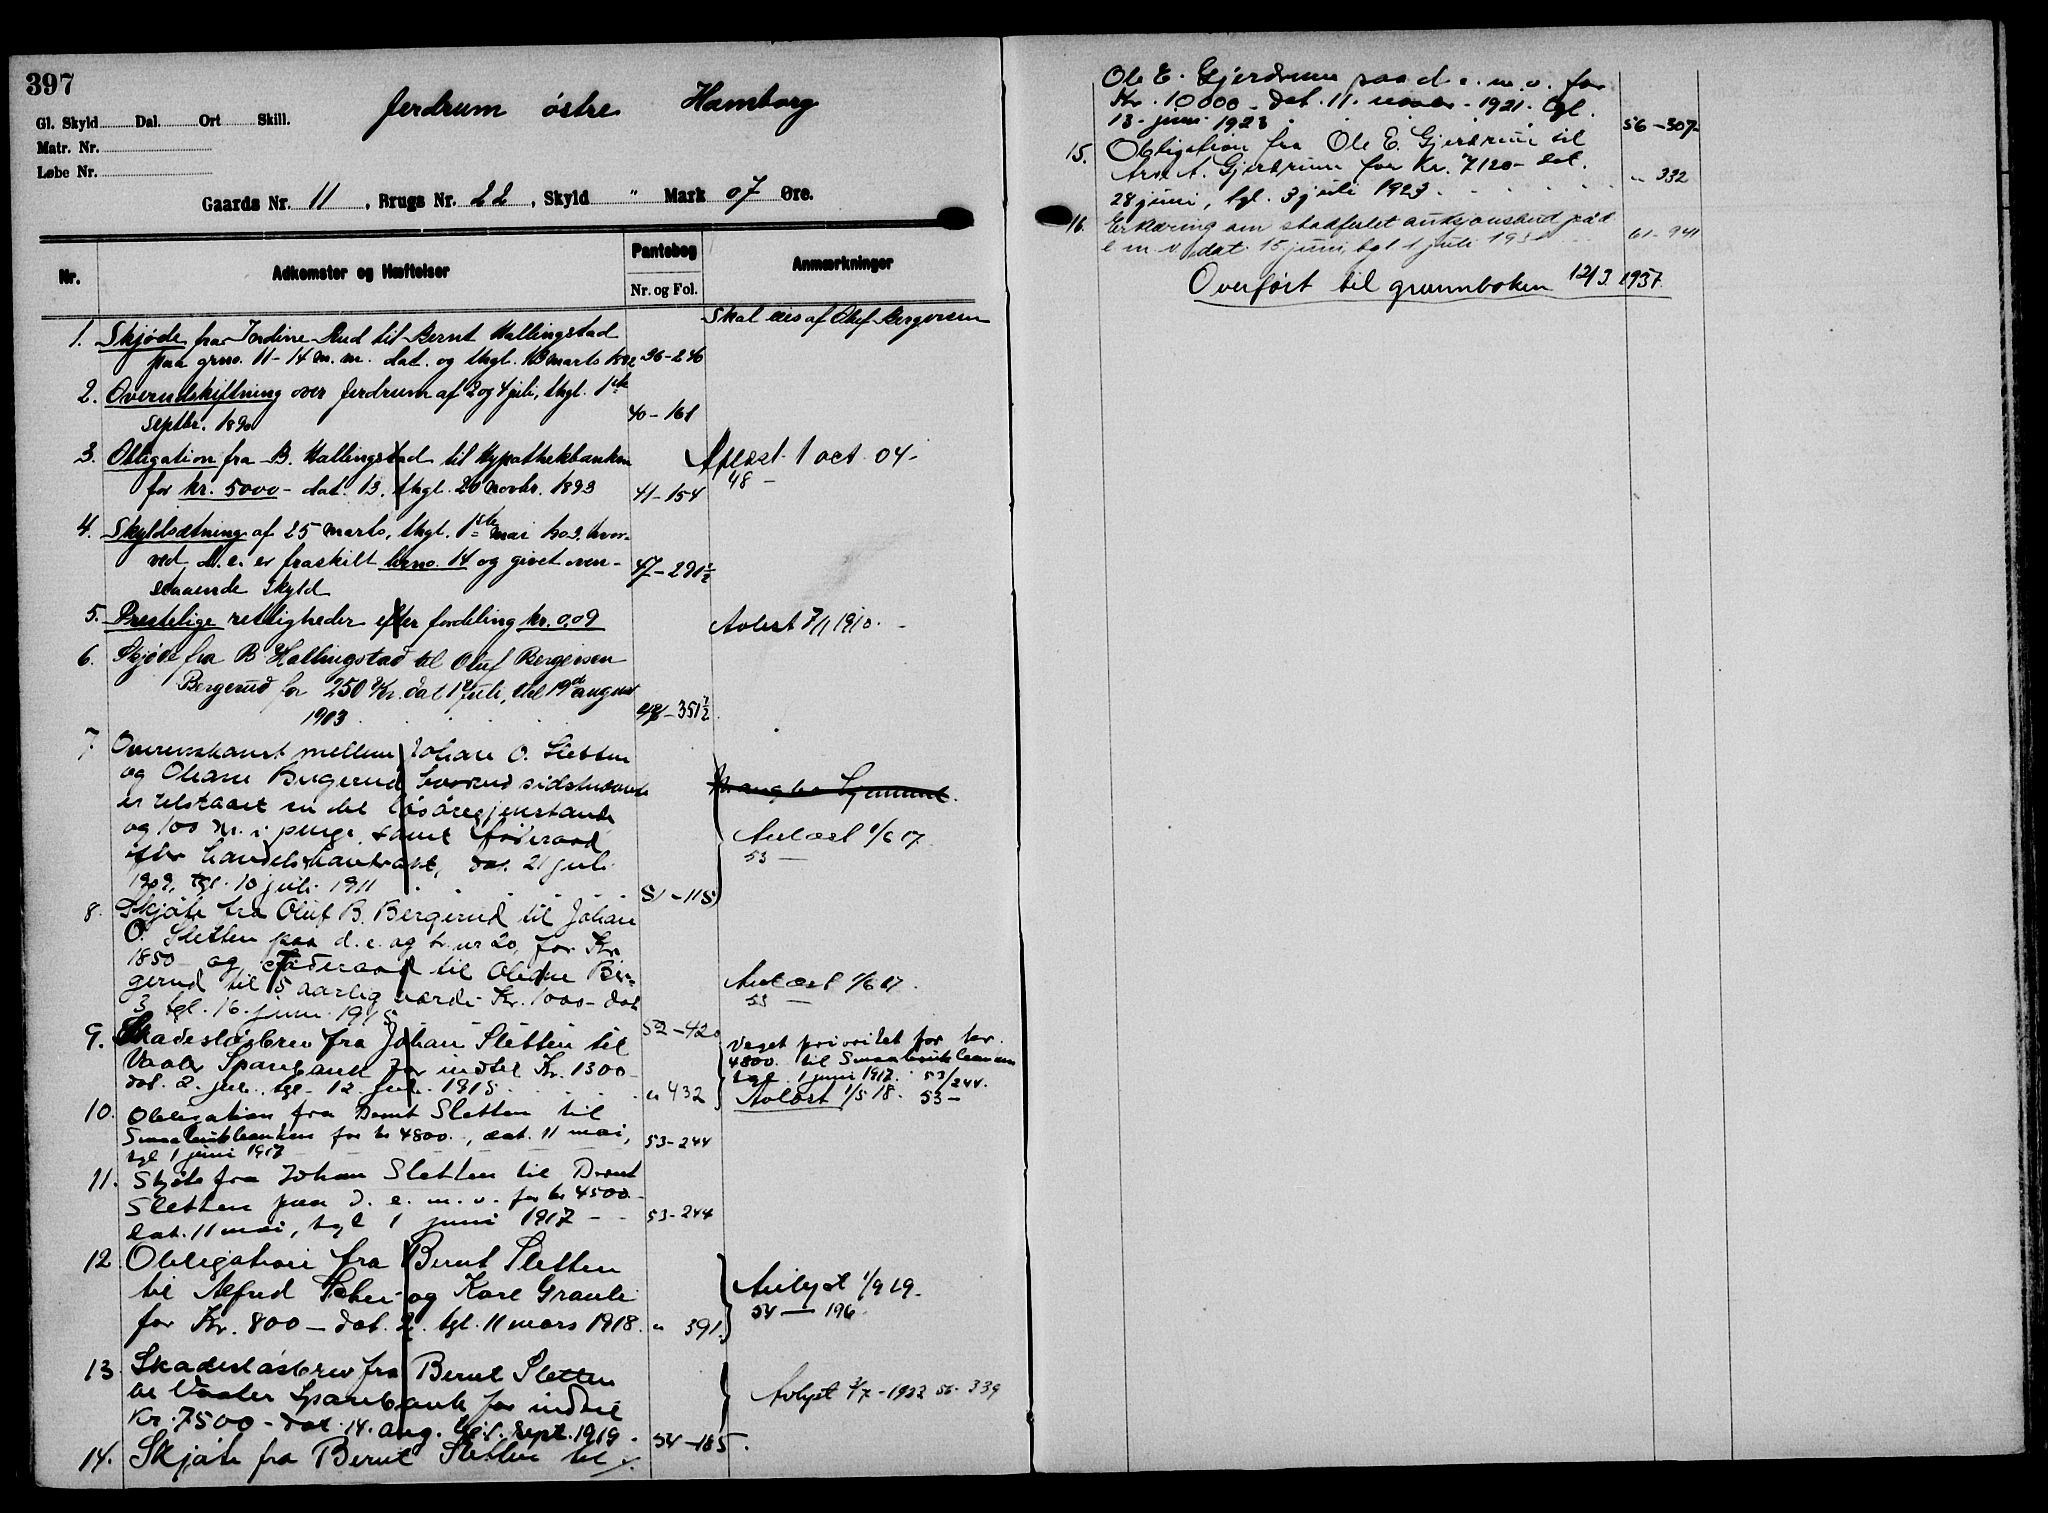 397
Jerdrum østre Hamborg
Gl. Skyld Dal. Ort Skill.
Matr. Nr.
Løbe Nr.
Gaards Nr. 11, Brugs Nr. 22, Skyld " Mark 07 Øre.
Nr. Adkomster og Hæftelser Pantebog Nr. og Fol. Anmærkninger
Skal eies af Oluf Bergersen
1. Skjøde fra Rud til Bernt Hallingstad
paa grno. 11-14 m. m. dat. og thgl. marts 36-246
2. Overudskiftning over Jerdrum af 2 og 4 juli, thgl. 1ste
Septbr. 1890 40-161
3. Obligation fra B. Hallingstad til Hypothekbanken Aflæst 1 oct. 04-
for kr. 5000- dat. 13, thgl. 20 novbr. 1893 41-154 48 -
4. Skyldsætning af 25 marts, thgl. 1ste mai 1903, hvor-
ved d. e. er fraskilt brno. 14 og givet oven-
staaende skyld 47-291½
5. Prestelige rettigheder efter fordeling kr. 0,09 Avlæst 7/11 1910. -
6. Skjøde fra B Hallingstad til Oluf Bergersen
Bergerud for 250 Kr. dat 1 juli, thgl 19de august
1903 351½
7. Overenskomst mellem Johan O. Sletten
og Oliane Bergerud, hvorved sidstnævnte
er tilstaaet en del løsøregjenstande
og 100 kr. i penge samt føderaad Avlæst 1/6 17.
efter handelskontrakt, dat. 21 juli 53 -
1909, tgl. 10 juli 1911 51-115
8. Skjøte fra Oluf B. Bergerud til Johan
O. Sletten paa d. e. og br. nr 20, for Kr.
1850- og føderaad til Oliane Ber-
gerud til 5 aarlig værdi Kr. 1000- dat Avlæst 1/6 17.
3, tgl. 16. juni 1915 52-420 53 -
9. Skadesløsbrev fra Johan Sletten til Veget prioritet for kr.
Vaaler Sparebank for indtil Kr. 1300- 4800. til Smaabruksbanken
dat. 2. juli, tgl. 12. juli 1915 " 432 tgl. 1 juni 1917. 53/244.
Avlæst 1/5 18. 53-
10. Obligation fra Bernt Sletten til
Smaabruksbanken for kr 4800.-, dat. 11 mai, 53-244
tgl 1 juni 1917
11. Skjøte fra Johan Sletten til Bernt
Sletten paa d. e. m. v. for kr 4500-
dat. 11 mai, tgl 1 juni 1917 - - 53-244
12. Obligation fra Bernt Sletten
til Alfred og Karl Granli Avlyst 1/9 19.
for Kr. 800- dat. 2. tgl. 11 mars 1918. " 391. 54 - 196.
13. Skadesløsbrev fra Bernt Sletten
til Vaaler Sparebank for indtil Avlyst 3/7-1923 56-339
Kr. 7500- dat. 14. aug. sept. 1919. 54-185.
14. Skjøte fra Bernt Sletten til ./.
Ole E. Gjerdrum paa d. e. m. v. for
Kr. 10000- dat. 11. novbr. 1921. tgl.
13. juni 1923 56-307-
15. Obligation fra Ole E. Gjerdrum til
A. Gjerdrum for Kr. 7120- dat. " 332
28 juni, tgl. 3 juli 1923.
16. Erklæring om stadfestet auksjonsbud på d
e m v, dat. 15 juni, tgl 1 juli 61-941
Overført til grunnboken 12/3. 1957.